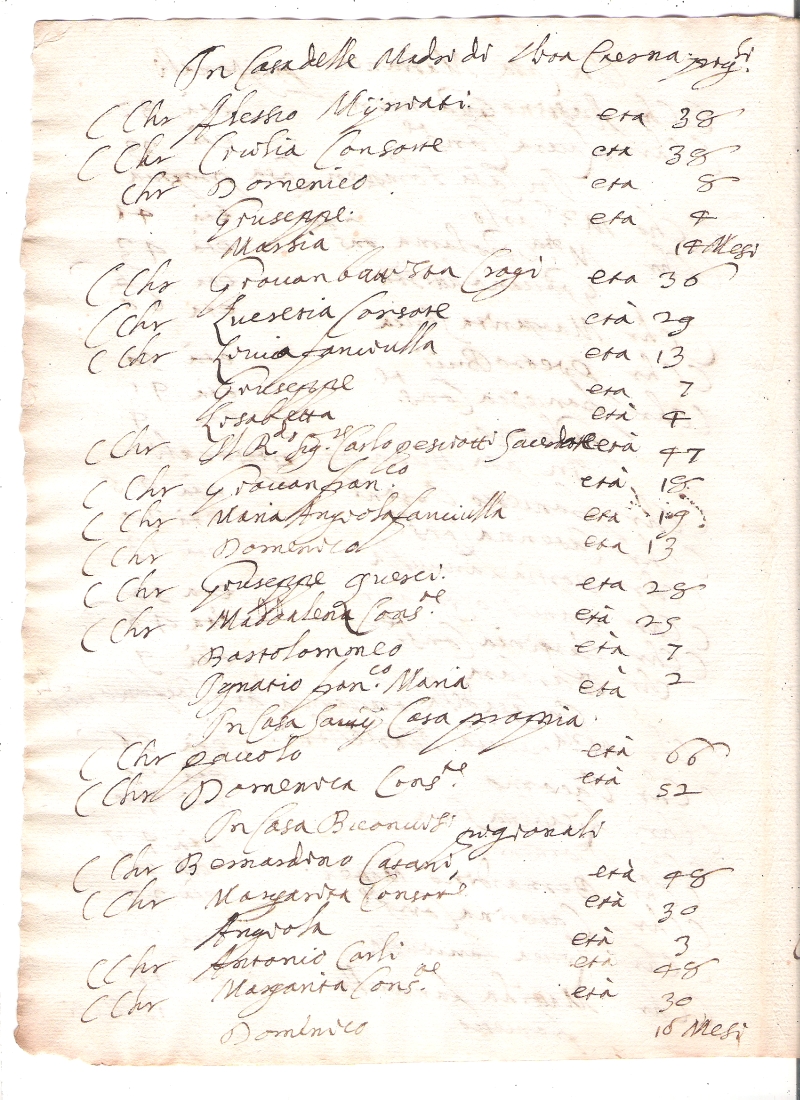 In Casa delle Madri di Vita Eterna pig.ni
C Chr Alessio eta 38
C Chr Cicilia Consorte eta 38
Chr Domenico eta 8
Giuseppe eta 4
Marsia 14 Mesi
C Chr Giovanbattista Cragi eta 36
C Chr Lucretia Consorte età 29
C Chr Livia fanciulla eta 13
Giuseppe eta 7
Lisabetta età 4
C Chr Il R.do Sig.re Carlo pesciatti Sacerdote età 47
C Chr Giovan fran.co età 18
C Chr Maria Angiola fanciulla eta 19
C Chr Domenica eta 13
C Chr Giuseppe querci eta 28
C Chr Maddalena Cons.te età 25
Bartolommeo età 7
Ignatio fran.co Maria età 2
In Casa Casa propria
C Chr paccolo età 66
C Chr Domenica Cons.te età 52
In Casa pigionali
C Chr Bernardino Casani età 48
C Chr Margarita Consorte età 30
Angiola età 3
C Chr Antonio Carli età 48
C Chr Margarita Cons.te età 30
Domenico 18 Mesi